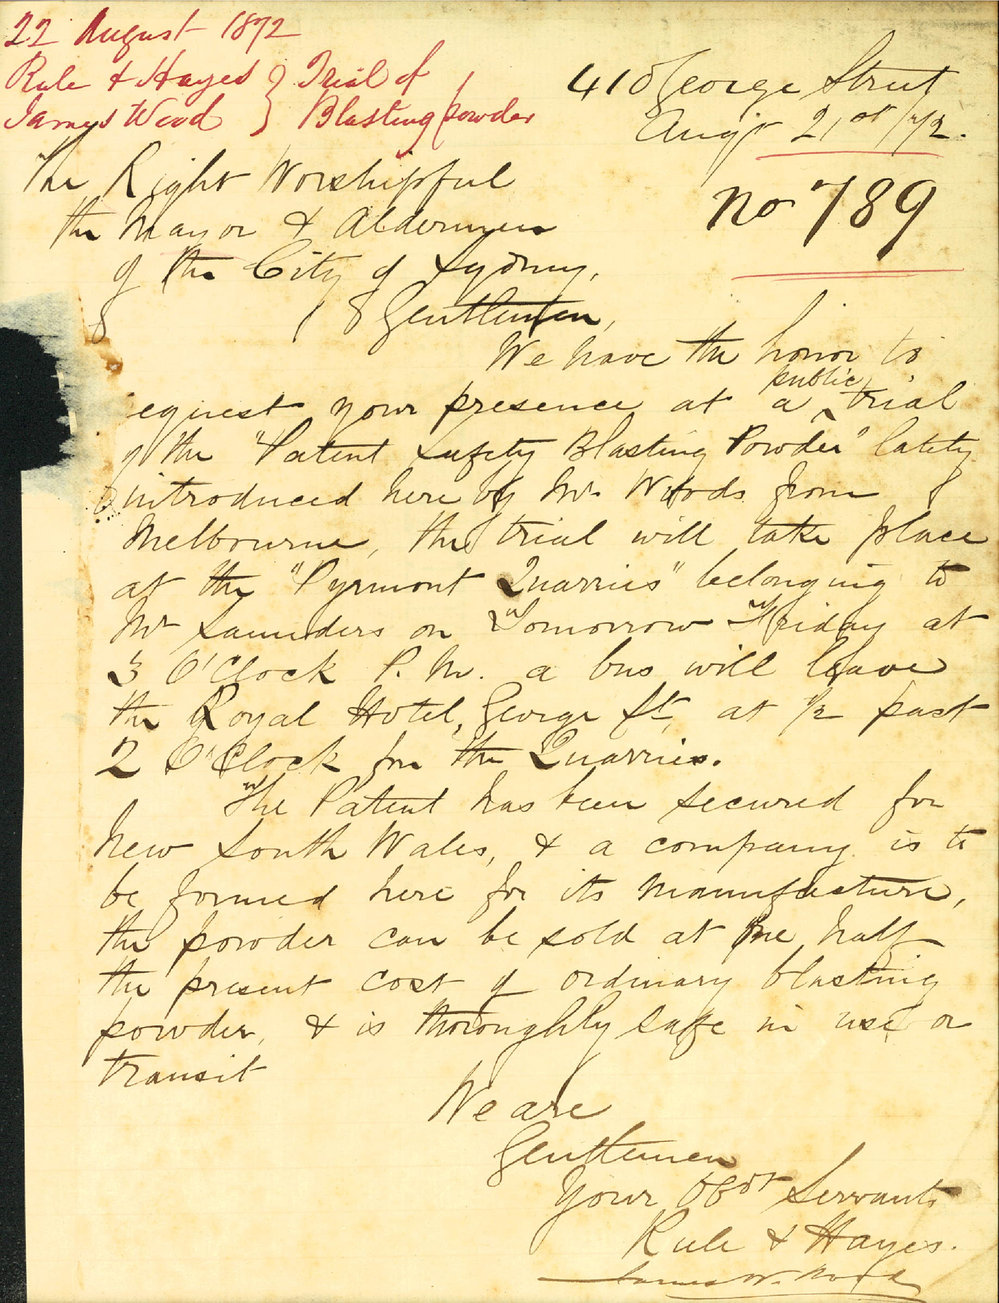 22 August 1872
Rule & Hayes } Trial of
James Wood } Blasting powder
410 George Street
Augst 21st /72.
No 789
The Right Worshipful
the Mayor & Aldermen
of the City of Sydney,
Gentlemen,
We have the honor to
public
equest your presence at a ^ trial
of the "Patent Safety Blasting Powder" lately
introduced here by Mr Woods from
Melbourne, the trial will take place
at the "Pyrmont Quarries" belonging to
Mr Saunders on Tomorrow Friday at
3 O'Clock P.M. a bus will leave
the Royal Hotel, George St, at ½ past
2 O'Clock for the Quarries.
The Patent has been secured for
New South Wales, & a company is to
be formed here for its manufacture,
the powder can be sold at one half
the present cost of ordinary blasting
powder, & is thoroughly safe in use or
transit
We are
Gentlemen
Your Obdt Servants
Rule & Hayes.
James W. Wood